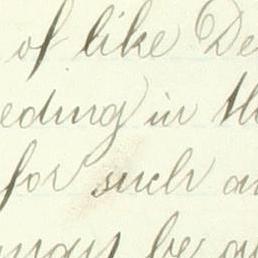 of like De
eding in th
for such an
may be au